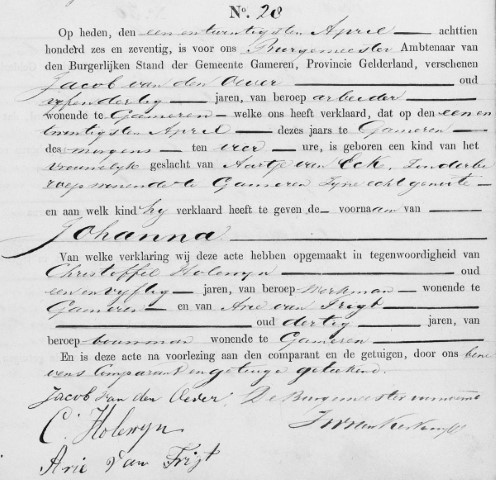 No. 28
Op heden, den een en twintigsten April achttien
honderd zes en zeventig, is voor ons Burgemeester Ambtenaar van
den Burgerlijken Stand der Gemeente Gameren, Provincie Gelderland, verschenen
Jacob van den Oever oud
vijfendertig jaren, van beroep arbeider
wonende te Gameren welke ons heeft verklaard, dat op den een en
twintigsten April dezes jaars te Gameren
des morgens ten vier ure, is geboren een kind van het
vrouwelyk geslacht van Aartje van Eck, zonder be
roep wonende te Gameren zyne echtgenoote
en aan welk kind hy verklaard heeft te geven de voornaam van
Johanna
Van welke verklaring wij deze acte hebben opgemaakt in tegenwoordigheid van
Christoffel Holewyn oud
een en vyftig jaren, van beroep Werkman wonende te
Gameren en van Arie van Frigt
oud dertig jaren, van
beroep bouwman wonende te Gameren
En is deze acte na voorlezing aan den comparant en de getuigen, door ons bene
vens Comparant en getuige geteekend.
Jacob van den Oever De Burgemeester voornoemd
C. Holewyn
Arie van Frigt